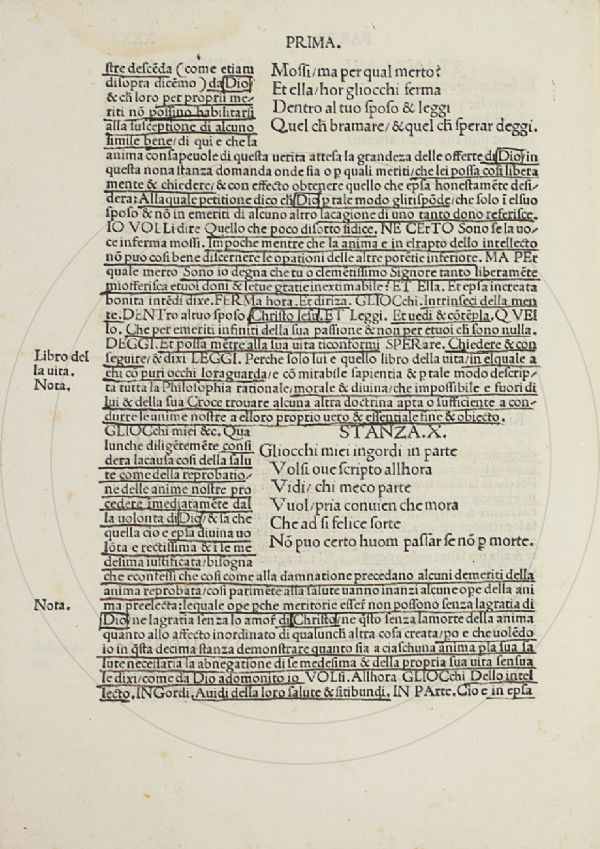 PRIMA.
ſtre deſcēda (come etiam
diſopra dicēmo) da Dio
& ch̄ loro per proprii me-
riti nō poſſino habilitarſi
alla ſuſceptione di alcuno
ſimile bene/di qui e che la
Moſſi/ma per qual merto?
Et ella/hor gliocchi ferma
Dentro al tuo ſpoſo & leggi
Quel ch̄ bramare/& quel ch̄ ſperar deggi.
anima conſapeuole di queſta uerita atteſa la grandeza delle offerte di Dio/in
queſta nona ſtanza domanda onde ſia o p quali meriti/che lei poſſa coſi libera
mente & chiedere/& con effecto obtenere quello che epſa honeſtamēte deſi-
dera: Alla quale petitione dico ch̄ Dio p tale modo gliriſpōde/che ſolo ī elſuo
ſpoſo & nō in emeriti di alcuno altro lacagione di uno tanto dono referiſce.
IO VOLLi dire Quello che poco diſotto ſidice. NE CErTO Sono ſe la uo-
ce inferma moſſi. Impoche mentre che la anima e in elrapto dello intellecto
nō puo coſi bene diſcernere le opationi delle altre potētie inferiore. MA PEr
quale merto Sono io degna che tu o clemētiſſimo Signore tanto liberamēte
miofferiſca etuoi doni & letue gratie ineximabile? ET Ella. Et epſa increata
bonita intēdi dixe. FERMa hora. Et diriza. GLIOCchi. Intrinſeci della men
te. DENTro altuo ſpoſo/Chriſto Ieſu. ET Leggi. Et uedi & cōtēpla. Q VEl
lo. Che per emeriti infiniti della ſua paſſione & non per etuoi ch̄ ſono nulla.
DEGGI. Et poſſa mētre alla ſua uita ticonformi SPERare. Chiedere & con
ſeguire/& dixi LEGGI. Perche ſolo lui e quello libro della uita/in elquale a
chi cō puri occhi loraguarda/e cō mirabile ſapientia & p tale modo deſcrip-
ta tutta la Philoſophia rationale/morale & diuina/che impoſſibile e fuori di
lui & della ſua Croce trouare alcuna altra doctrina apta o ſufficiente a con-
durre le anime noſtre a elloro proprio uero & eſſentiale fine & obiecto.
Libro del
la uita.
Nota.
GLIOCchi miei &c. Qua
lunche diligētemēte conſi
dera lacauſa coſi della ſalu
te come della reprobatio-
ne delle anime noſtre pro
cedere īmediatamēte dal
la uolonta di Dio/& ſa che
quella cio e epſa diuina uo
lōta e rectiſſima & ī ſe me
deſima iuſtificata/biſogna
STANZA.X.
Gliocchi miei ingordi in parte
Volſi oue ſcripto allhora
Vidi/chi meco parte
Vuol/pria conuien che mora
Che ad ſi felice ſorte
Nō puo certo huom paſſar ſe nō p morte.
che econfeſſi che coſi come alla damnatione precedano alcuni demeriti della
anima reprobata/coſi parimēte alla ſalute uanno inanzi alcune ope della ani
ma preelecta: lequale ope pche meritorie eſſer nō poſſono ſenza lagratia di
Dio/ne lagratia ſenza lo amor di Chriſto/ne q̄ſto ſenza lamorte della anima
quanto allo affecto inordinato di qualunch̄ altra coſa creata/po e che uolēdo
io in q̄ſta decima ſtanza demonſtrare quanto ſia a ciaſchuna anima p la ſua ſa
lute neceſſaria la abnegatione di ſe medeſima & della propria ſua uita ſenſua
le dixi/come da Dio admonito io VOLſi. Allhora GLIOCchi Dello intel
lecto. INGordi. Auidi della loro ſalute & ſitibundi. IN PArte. Cio e in epſa
Nota.